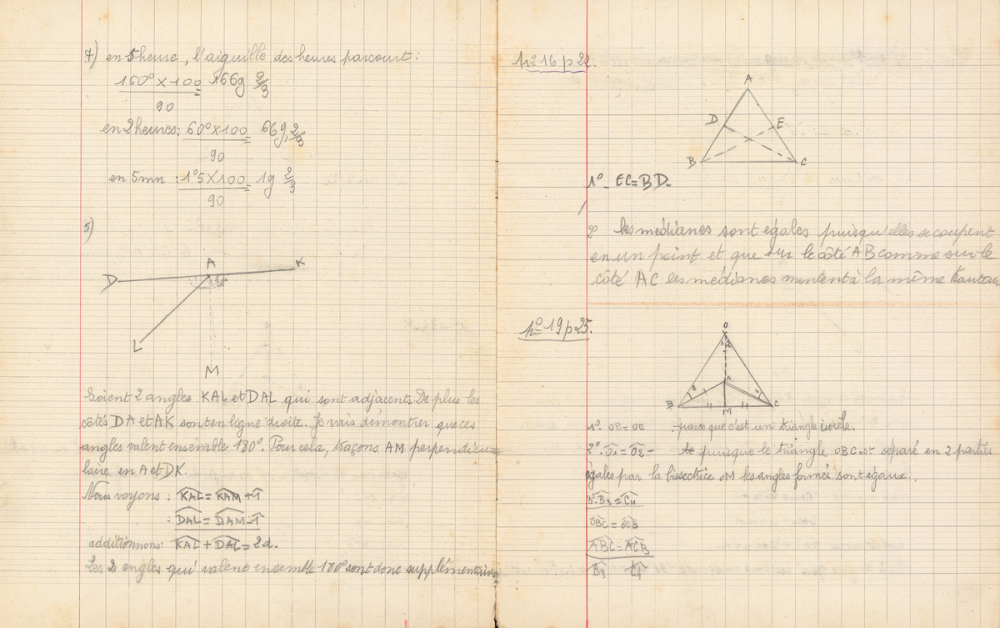 7) en 5 heure, l'aiguille des heures parcourt:
150° x 100 = 166g 2/3
90
en 2 heures: 60° x 100 = 66g, 2/3
90
en 5mn: 1°5 x 100 = 1g 2/3
90
5)
D A K
L
M
Soient 2 angles KAL et DAL qui sont adjacents. De plus les
côtés DA et AK sont en ligne droite. Je vais démontrer que ces
angles valent ensemble 180°. Pour cela, traçons AM perpendicu
laire en A et DK.
Nous voyons: KAL = KAM + 1
: DAL = DAM - 1
additionnons: KAL + DAL = 2d.
Les 2 angles qui valent ensemble 180° sont donc supplémentaires
n° 16 p 22.
A
D E
B C
1° - EC = BD.
2° les médianes sont égales puisqu'elles se coupent
en un point et que sur le côté AB comme sur le
côté AC les médianes montent à la même hauteur
n° 19 p 25.
O
A
B M C
1° OB = OC parce que c'est un triangle isocèle.
2° O1 = O2 - puisque le triangle OBC est séparé en 2 parties
égales par la bissectrice OM les angles formés sont égaux.
3° B3 = C4
OBC = OCB
ABC = ACB
B3 C4